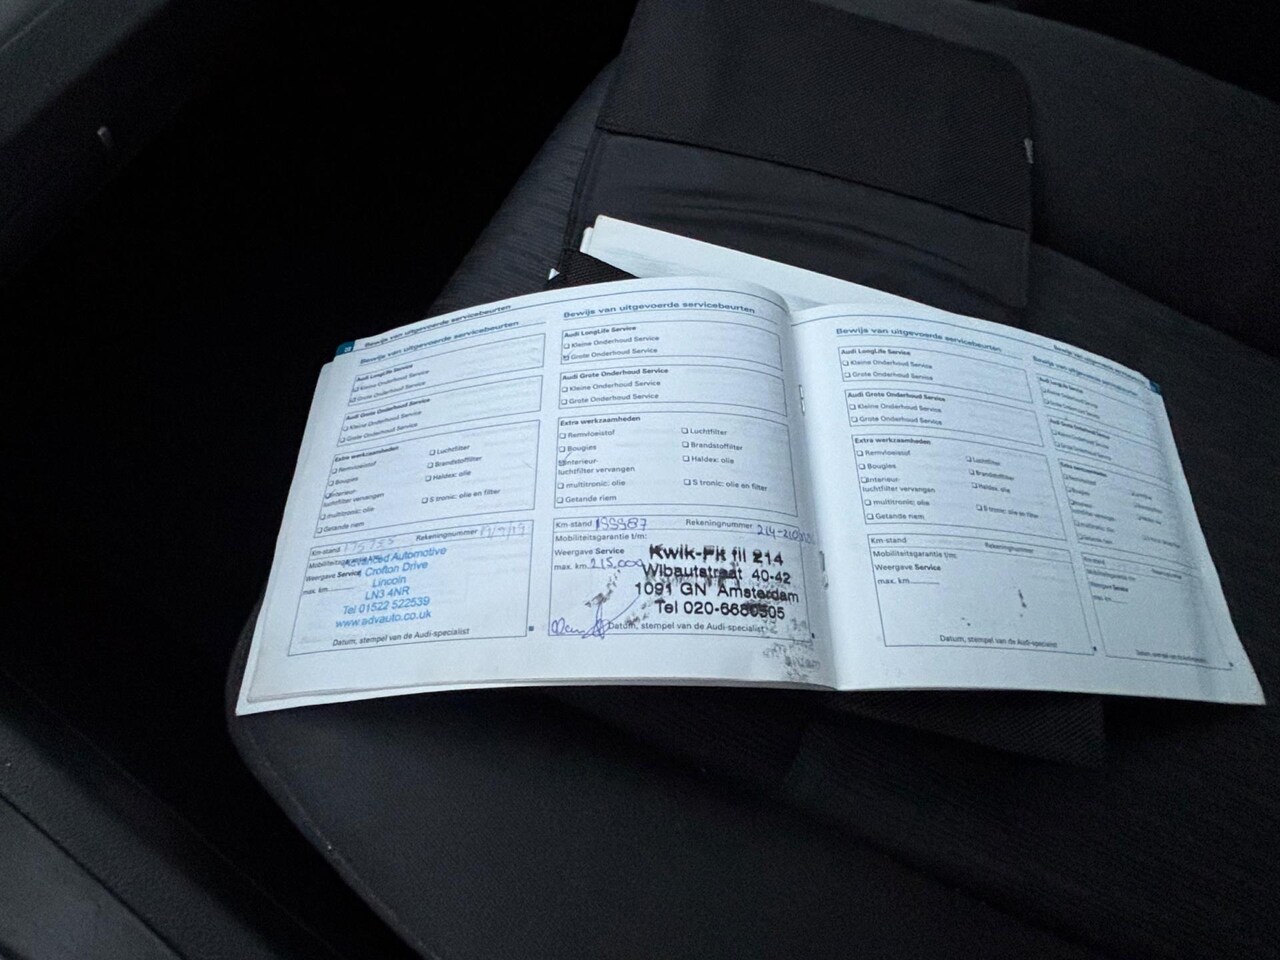 28 Bewijs van uitgevoerde servicebeurten
Bewijs van uitgevoerde servicebeurten
Audi LongLife Service
Kleine Onderhoud Service
Grote Onderhoud Service
Audi Grote Onderhoud Service
Kleine Onderhoud Service
Grote Onderhoud Service
Extra werkzaamheden
Remvloeistof
Luchtfilter
Bougies
Brandstoffilter
Interieur-
luchtfilter vervangen
Haldex: olie
multitronic: olie
S tronic: olie en filter
Getande riem
Km-stand Rekeningnummer 19/9/19
Mobiliteitsgarantie
Weergave Service
max. km
Advanced Automotive
Crofton Drive
Lincoln
LN3 4NR
Tel 01522 522539
www.advauto.co.uk
Datum, stempel van de Audi-specialist
Bewijs van uitgevoerde servicebeurten
Audi LongLife Service
Kleine Onderhoud Service
Grote Onderhoud Service
Audi Grote Onderhoud Service
Kleine Onderhoud Service
Grote Onderhoud Service
Extra werkzaamheden
Remvloeistof
Luchtfilter
Bougies
Brandstoffilter
Interieur-
luchtfilter vervangen
Haldex: olie
multitronic: olie
S tronic: olie en filter
Getande riem
Km-stand Rekeningnummer
Mobiliteitsgarantie t/m:
Weergave Service
max. km 215,000
Kwik-Fit fil 214
Wibautstraat 40-42
1091 GN Amsterdam
Tel 020-6680505
Datum, stempel van de Audi-specialist
Bewijs van uitgevoerde servicebeurten
Audi LongLife Service
Kleine Onderhoud Service
Grote Onderhoud Service
Audi Grote Onderhoud Service
Kleine Onderhoud Service
Grote Onderhoud Service
Extra werkzaamheden
Remvloeistof
Luchtfilter
Bougies
Brandstoffilter
Interieur-
luchtfilter vervangen
Haldex: olie
multitronic: olie
S tronic: olie en filter
Getande riem
Km-stand Rekeningnummer
Mobiliteitsgarantie t/m:
Weergave Service
max. km
Datum, stempel van de Audi-specialist
Bewijs van uitgevoerde servicebeurten
Bewijs van uitgevoerde servicebeurten
Audi LongLife Service
Audi Grote Onderhoud Service
Extra werkzaamheden
Remvloeistof
Bougies
luchtfilter vervangen
multitronic: olie
Getande riem
Km-stand
Weergave Service